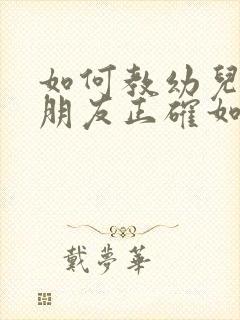 如何教幼兒
朋友正確如
戴夢華